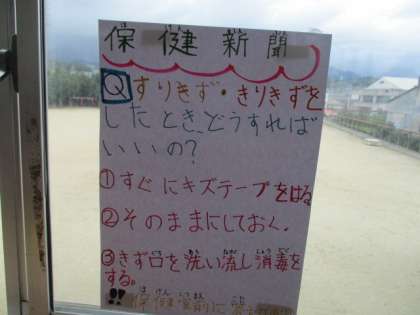 保健新聞
Qすりきず・きりきずを
したとき、どうすれば
いいの?
①すぐにキズテープをはる
②そのままにしておく.
③きず口を洗い流し消毒を
する。
!! 保健室前に